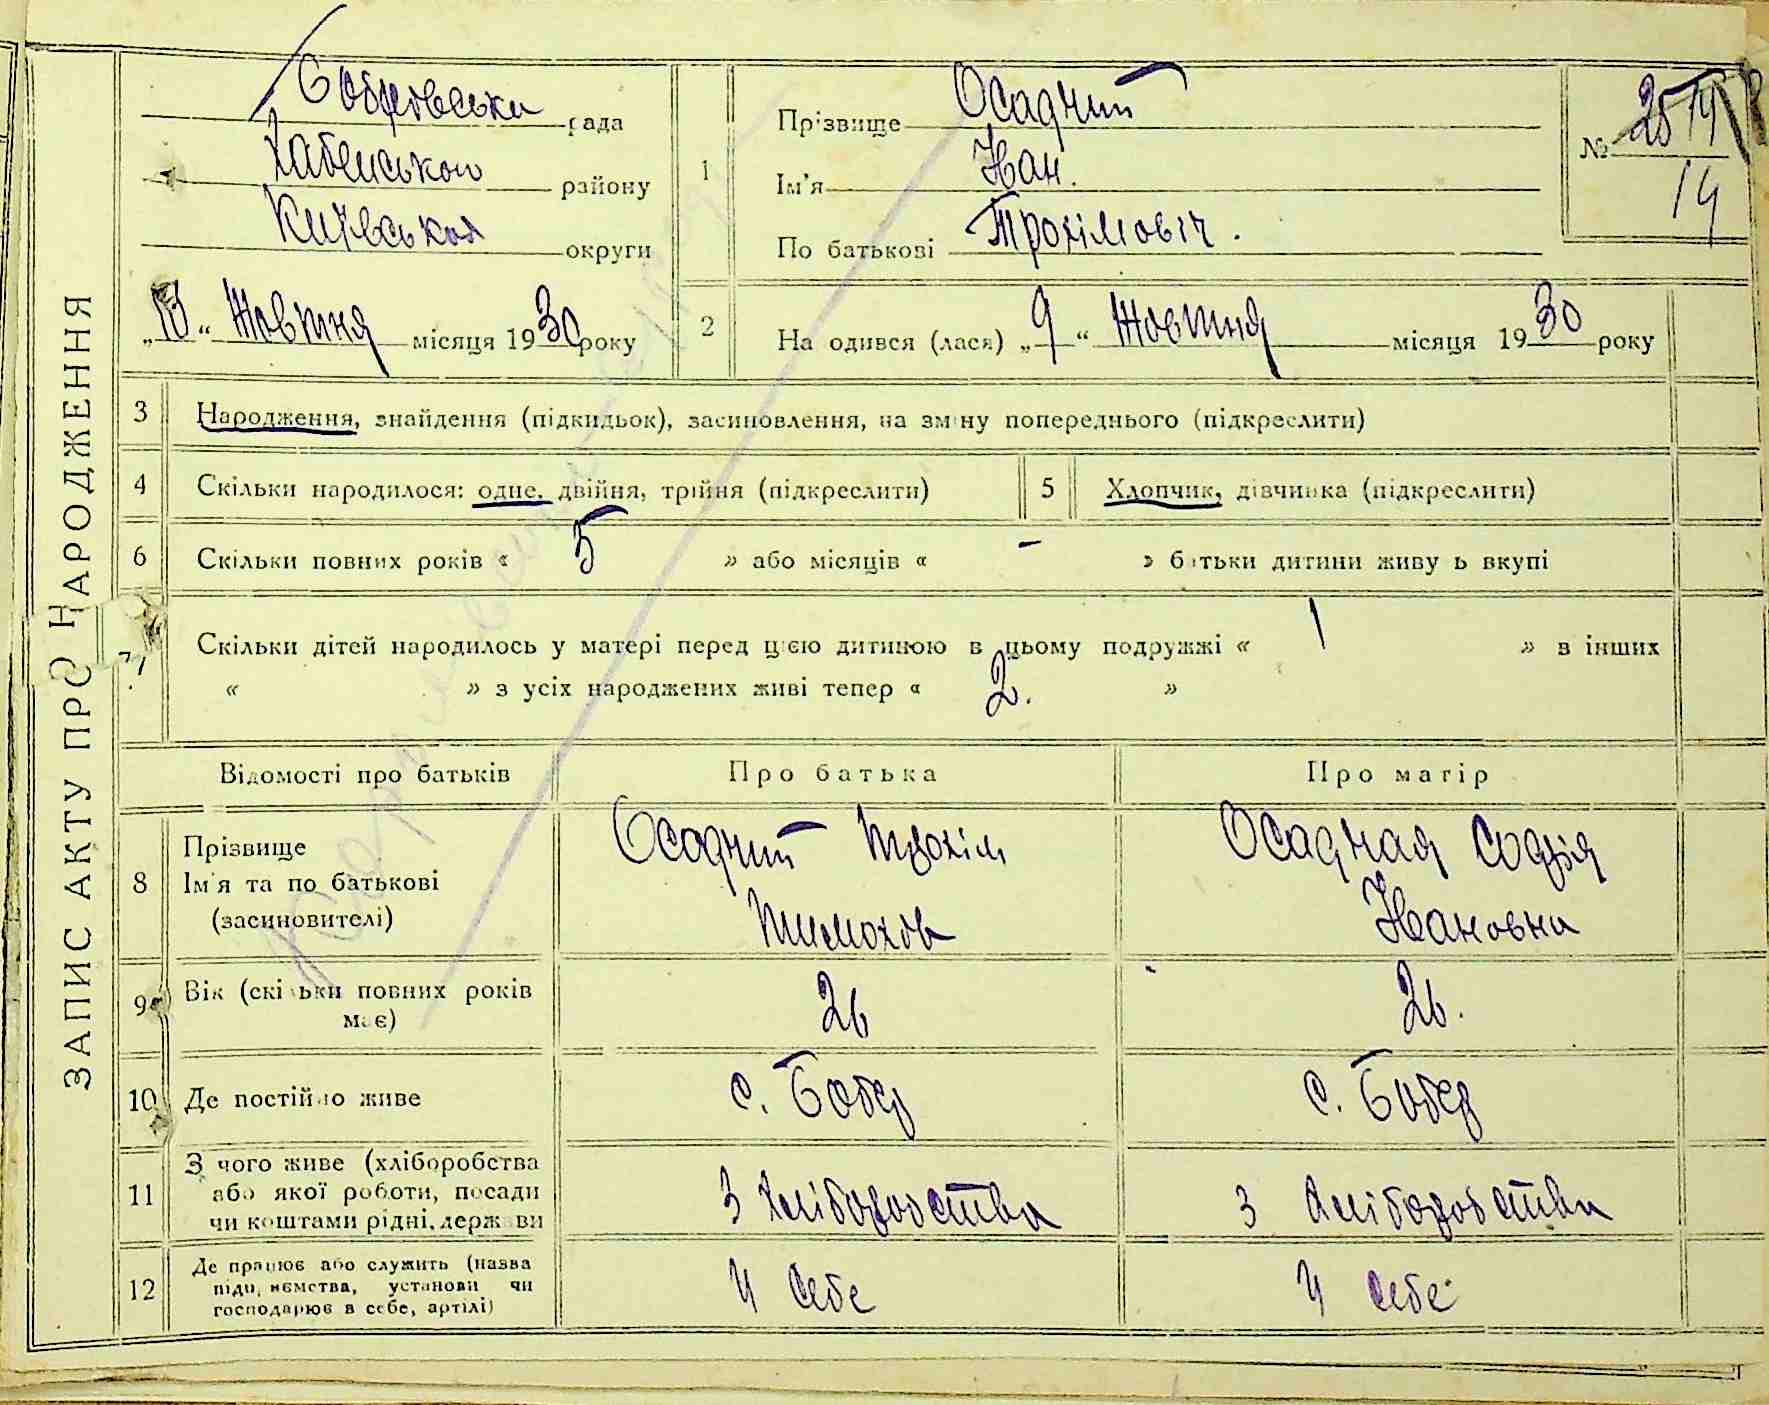 ЗАПИС АКТУ ПРО НАРОДЖЕННЯ
Бобрівська рада
Хабенського району
Київської округи
„13“ Жовтня місяця 1930 року
1
Прізвище Осадчий
Ім'я Іван.
По батькові Трохімовіч.
№ 14
2
На одився (лася) „9“ Жовтня місяця 1930 року
3 Народження, знайдення (підкидьок), засиновлення, на зміну попереднього (підкреслити)
4 Скільки народилося: одне, двійня, трійня (підкреслити)
5 Хлопчик, дівчинка (підкреслити)
6 Скільки повних років « 5 » або місяців « - » батьки дитини живу ь вкупі
7 Скільки дітей народилось у матері перед цією дитиною в цьому подружжі « 1 » в інших
« » з усіх народжених живі тепер « 2. »
Відомості про батьків
Про батька
Про матір
8
Прізвище
Ім'я та по батькові
(засиновителі)
Осадчий Трохім
Тимохов
Осадчая Софія
Івановна
9 Вік (скільки повних років
має)
26
26.
10 Де постійно живе
с. Бобер
с. Бобер
11
З чого живе (хліборобства
або якої роботи, посади
чи коштами рідні, держави
З хліборобства
З хліборобства
12
Де працює або служить (назва
підприємства, установи чи
господарює в себе, артілі)
У себе
У себе